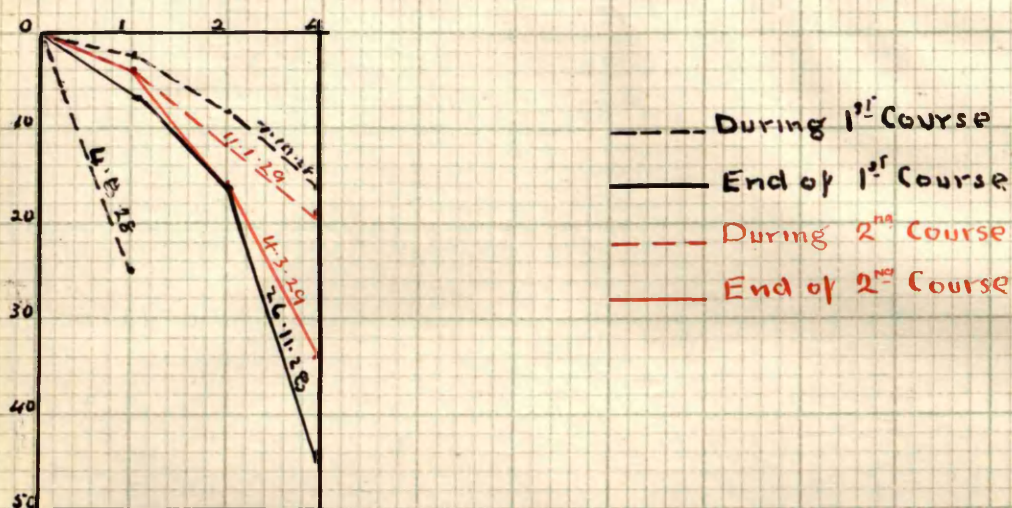 0 1 2 4
10
20
30
40
50
4.8.28
4.1.29
4.3.29
26.11.28
During 1st Course
End of 1st Course
During 2nd Course
End of 2nd Course